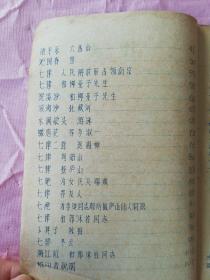 清平乐 六盘山
沁园春 雪
七律 人民解放军占领南京
七律 和柳亚子先生
浣溪沙 和柳亚子先生
浪淘沙 北戴河
水调歌头 游泳
蝶恋花 答李淑一
七律二首 送瘟神
七律 到韶山
七律 登庐山
七绝 为女民兵题照
七律 答友人
七绝 为李进同志题所摄庐山仙人洞照
七律 和郭沫若同志
卜算子 咏梅
七律 冬云
满江红 和郭沫若同志